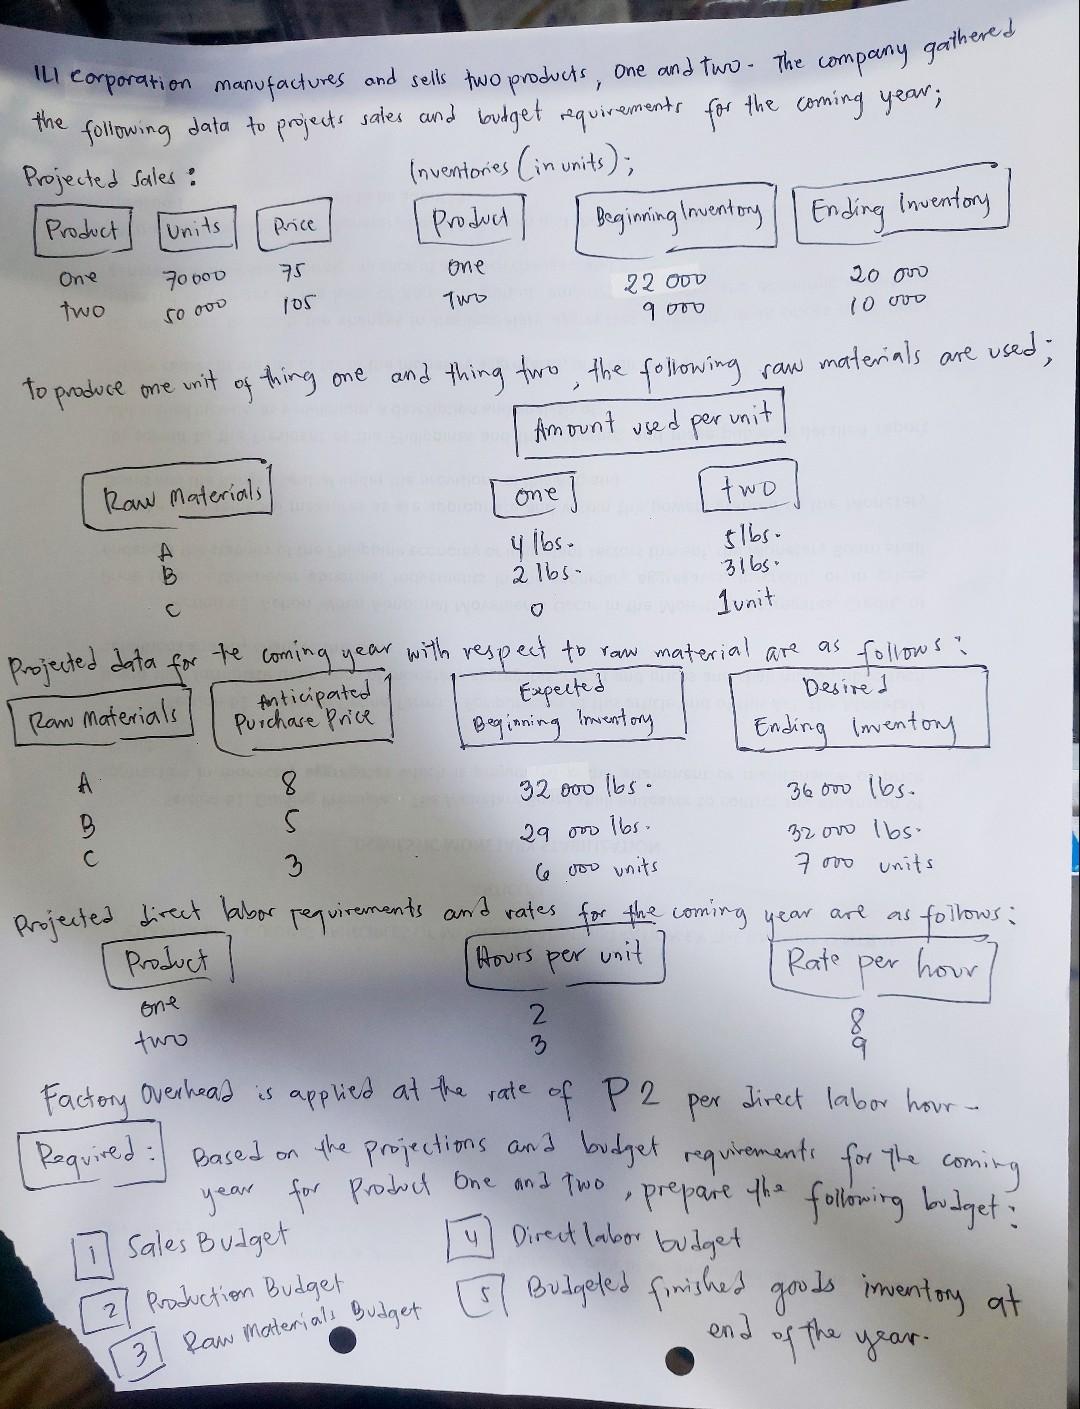 ILI Corporation manufactures and sells two products, One and two. The company gathered
the following data to projects sales and budget requirements for the coming year;
Projected Sales: Inventories (in units);
Product Units Price Product Beginning Inventory Ending Inventory
One 70 000 75 One 22 000 20 000
two 50 000 105 Two 9 000 10 000
To produce one unit of thing one and thing two, the following raw materials are used;
Amount used per unit
Raw Materials One two
A 4 lbs. 5 lbs.
B 2 lbs. 3 lbs.
C 0 1 unit
Projected data for te coming year with respect to raw material are as follows:
Raw Materials Anticipated Purchase Price Expected Beginning Inventory Desired Ending Inventory
A 8 32 000 lbs. 36 000 lbs.
B 5 29 000 lbs. 32 000 lbs.
C 3 6 000 units 7 000 units
Projected direct labor requirements and rates for the coming year are as follows:
Product Hours per unit Rate per hour
One 2 8
two 3 9
Factory Overhead is applied at the rate of P2 per direct labor hour-
Required: Based on the projections and budget requirements for the coming
year for Product One and Two, prepare the following budget:
1 Sales Budget 4 Direct labor budget
2 Production Budget 5 Budgeted finished goods inventory at
3 Raw Materials Budget end of the year.